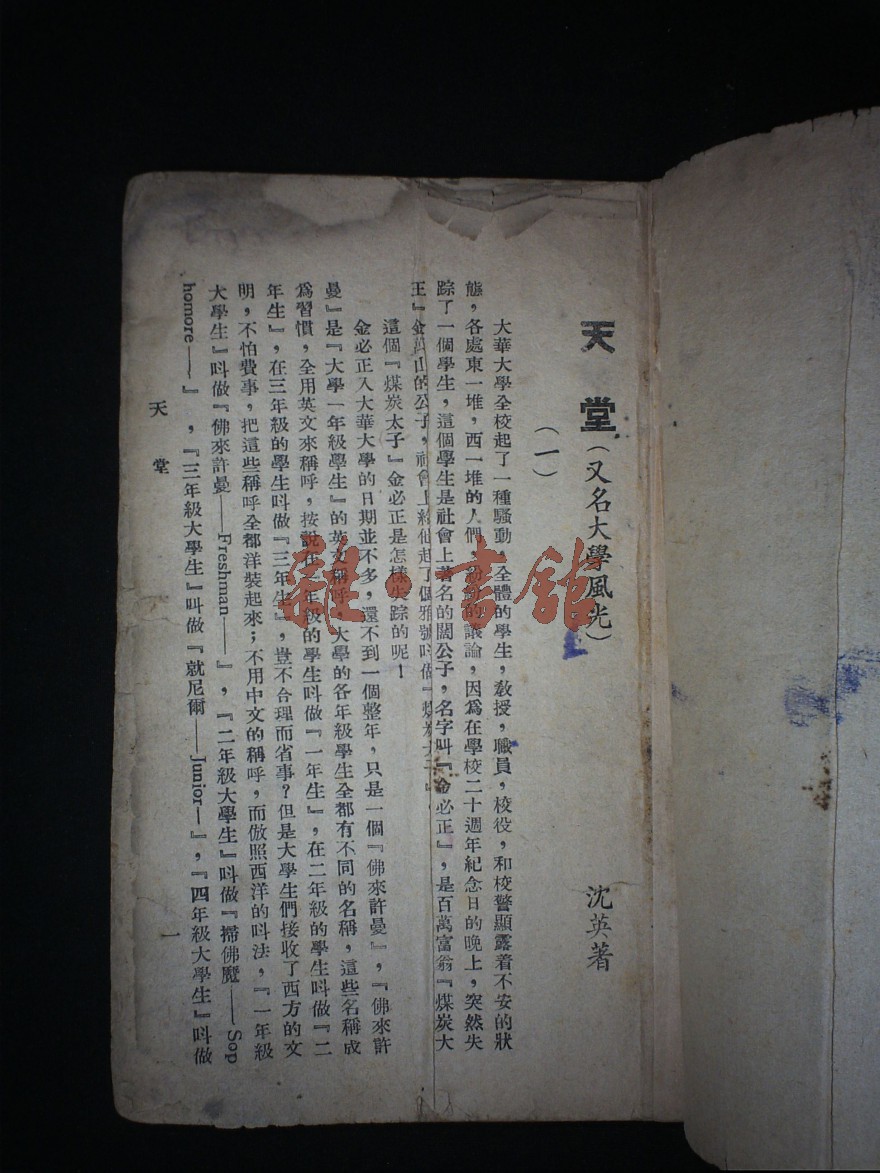 天堂（又名大學風光）
沈英著
（一）
大華大學全校起了一種騷動，全體的學生，敎授，職員，校役，和校警顯露着不安的狀
態，各處東一堆，西一堆的人們，紛紛的議論，因爲在學校二十週年紀念日的晚上，突然失
踪了一個學生，這個學生是社會上著名的闊公子，名字叫『金必正』，是百萬富翁『煤炭大
王』金山的公子，社會上給他起了個雅號叫做『煤炭太子』。
這個『煤炭太子』金必正是怎樣失踪的呢！
金必正入大華大學的日期並不多，還不到一個整年，只是一個『佛來許曼』，『佛來許
曼』是『大學一年級學生』的英文稱呼，大學的各年級學生全都有不同的名稱，這些名稱成
爲習慣，全用英文來稱呼，按說在一年級的學生叫做『一年生』，在二年級的學生叫做『二
年生』，在三年級的學生叫做『三年生』，豈不合理而省事？但是大學生們接收了西方的文
明，不怕費事，把這些稱呼全都洋裝起來；不用中文的稱呼，而倣照西洋的叫法，『一年級
大學生』叫做『佛來許曼——Freshman——』，『二年級大學生』叫做『掃佛魔——Sop
homore——』，『三年級大學生』叫做『就尼爾——Junior—』，『四年級大學生』叫做
天堂
一
雜·書館